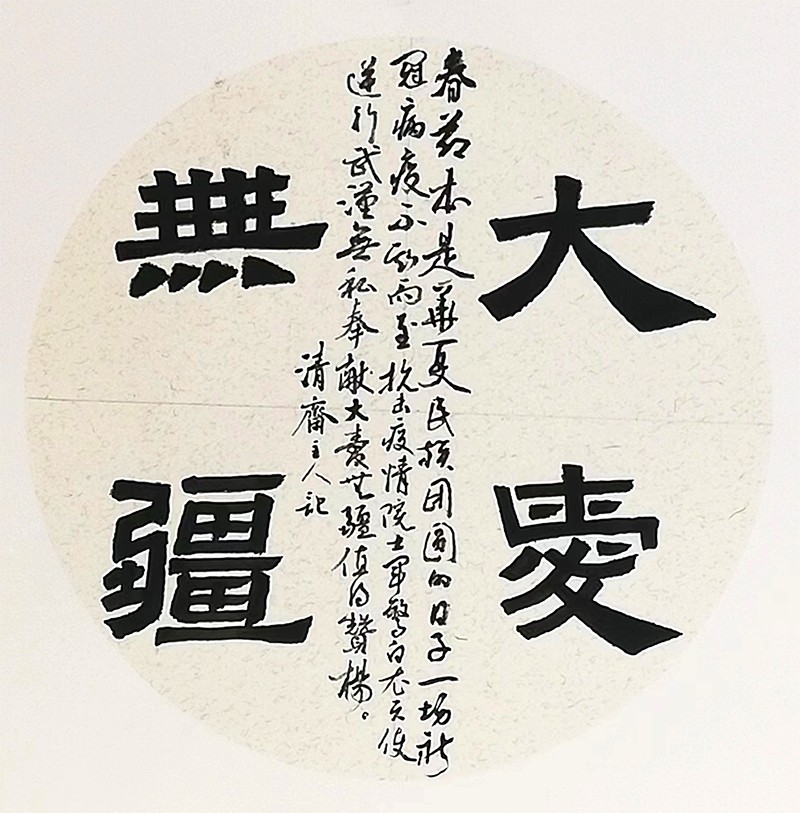 大愛
春节本是華夏民族团圓的日子一场新
冠病疫不期而至抗击疫情院士军警白衣天使
逆行武漢無私奉献大愛无疆值得贊楊。
清齋主人記
無疆